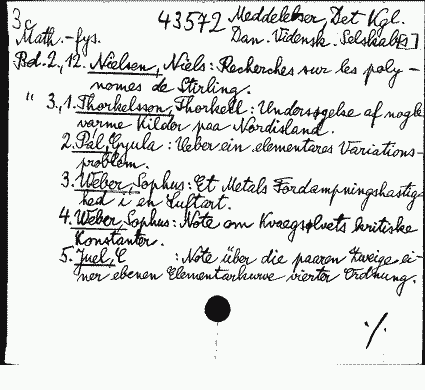 3c 43572 Meddelelser, Det Kgl.
Math.-fys. Dan. Vidensk. Selskab[s]
Bd. 2, 12. Nielsen, Niels: Recherches sur les poly-
nomes de Stirling.
" 3, 1. Thorkelsson, Thorkell: Undersøgelse af nogle
varme Kilder paa Nordisland.
2. Pál, Gyula: Ueber ein elementares Variations-
problem.
3. Weber, Sophus: Et Metals Fordampningshastig-
hed i en Luftart.
4. Weber, Sophus: Note om Kvægsølvets kritiske
Konstanter.
5. Juel, C : Note über die paaren Zweige ei-
ner ebenen Elementarkurve vierter Ordnung.
·/.